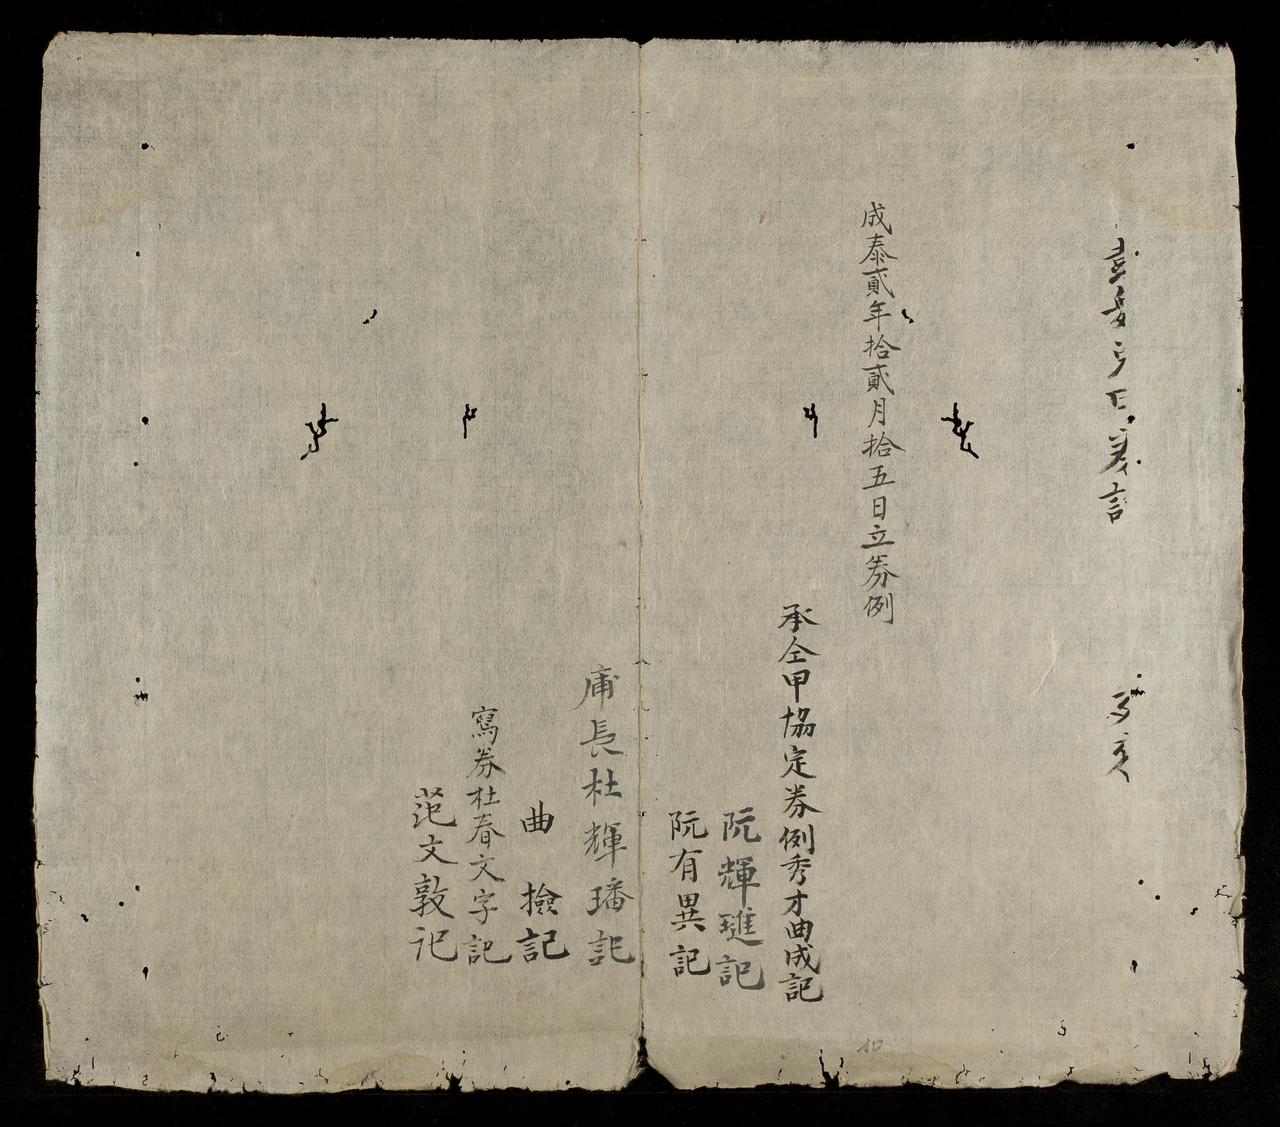 成泰貳年拾貳月拾五日立券例
承仝甲協定券例秀才曲成記
阮輝璡記
阮有異記
甫長杜輝璠記
曲撿記
寫券杜春文字記
范文敦記
10